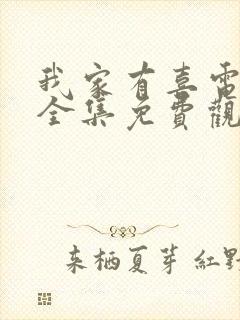 我家有喜電
全集免費觀
来栖夏芽 紅野